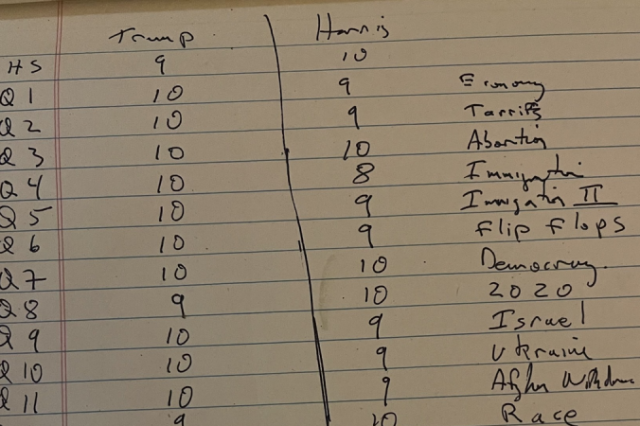 Trump Harris
HS 9 10
Q1 10 9 Economy
Q2 10 9 Tarrifs
Q3 10 10 Abortion
Q4 10 8 Immigration
Q5 10 9 Immigration II
Q6 10 9 flip flops
Q7 10 10 Democracy
Q8 9 10 2020
Q9 10 9 Israel
Q10 10 9 Ukraine
Q11 10 9 Afghan
9 10 Race